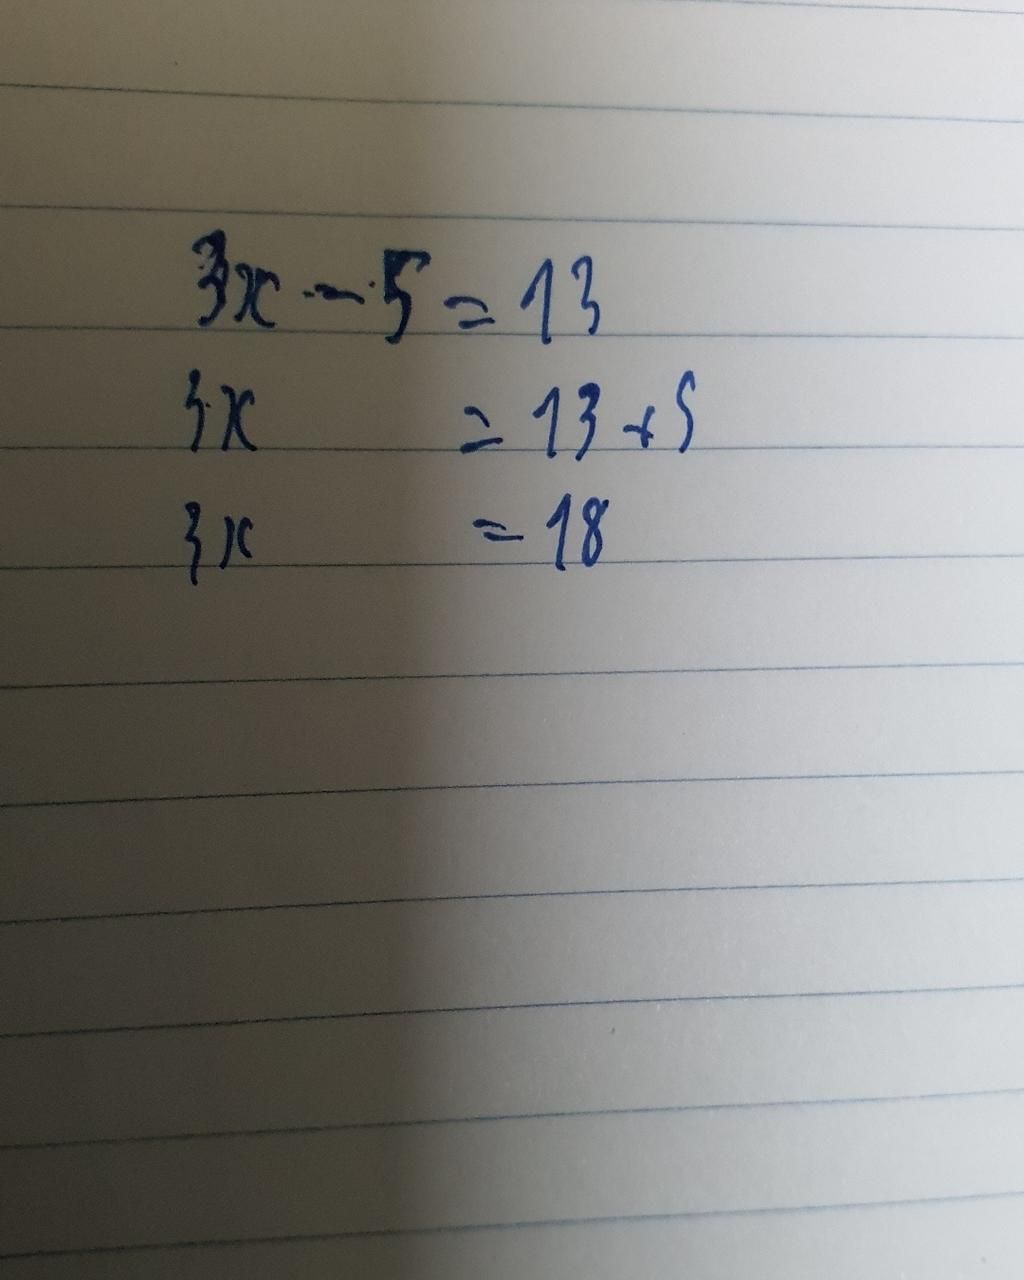 3x - 5 = 13
3x = 13 + 5
3x = 18